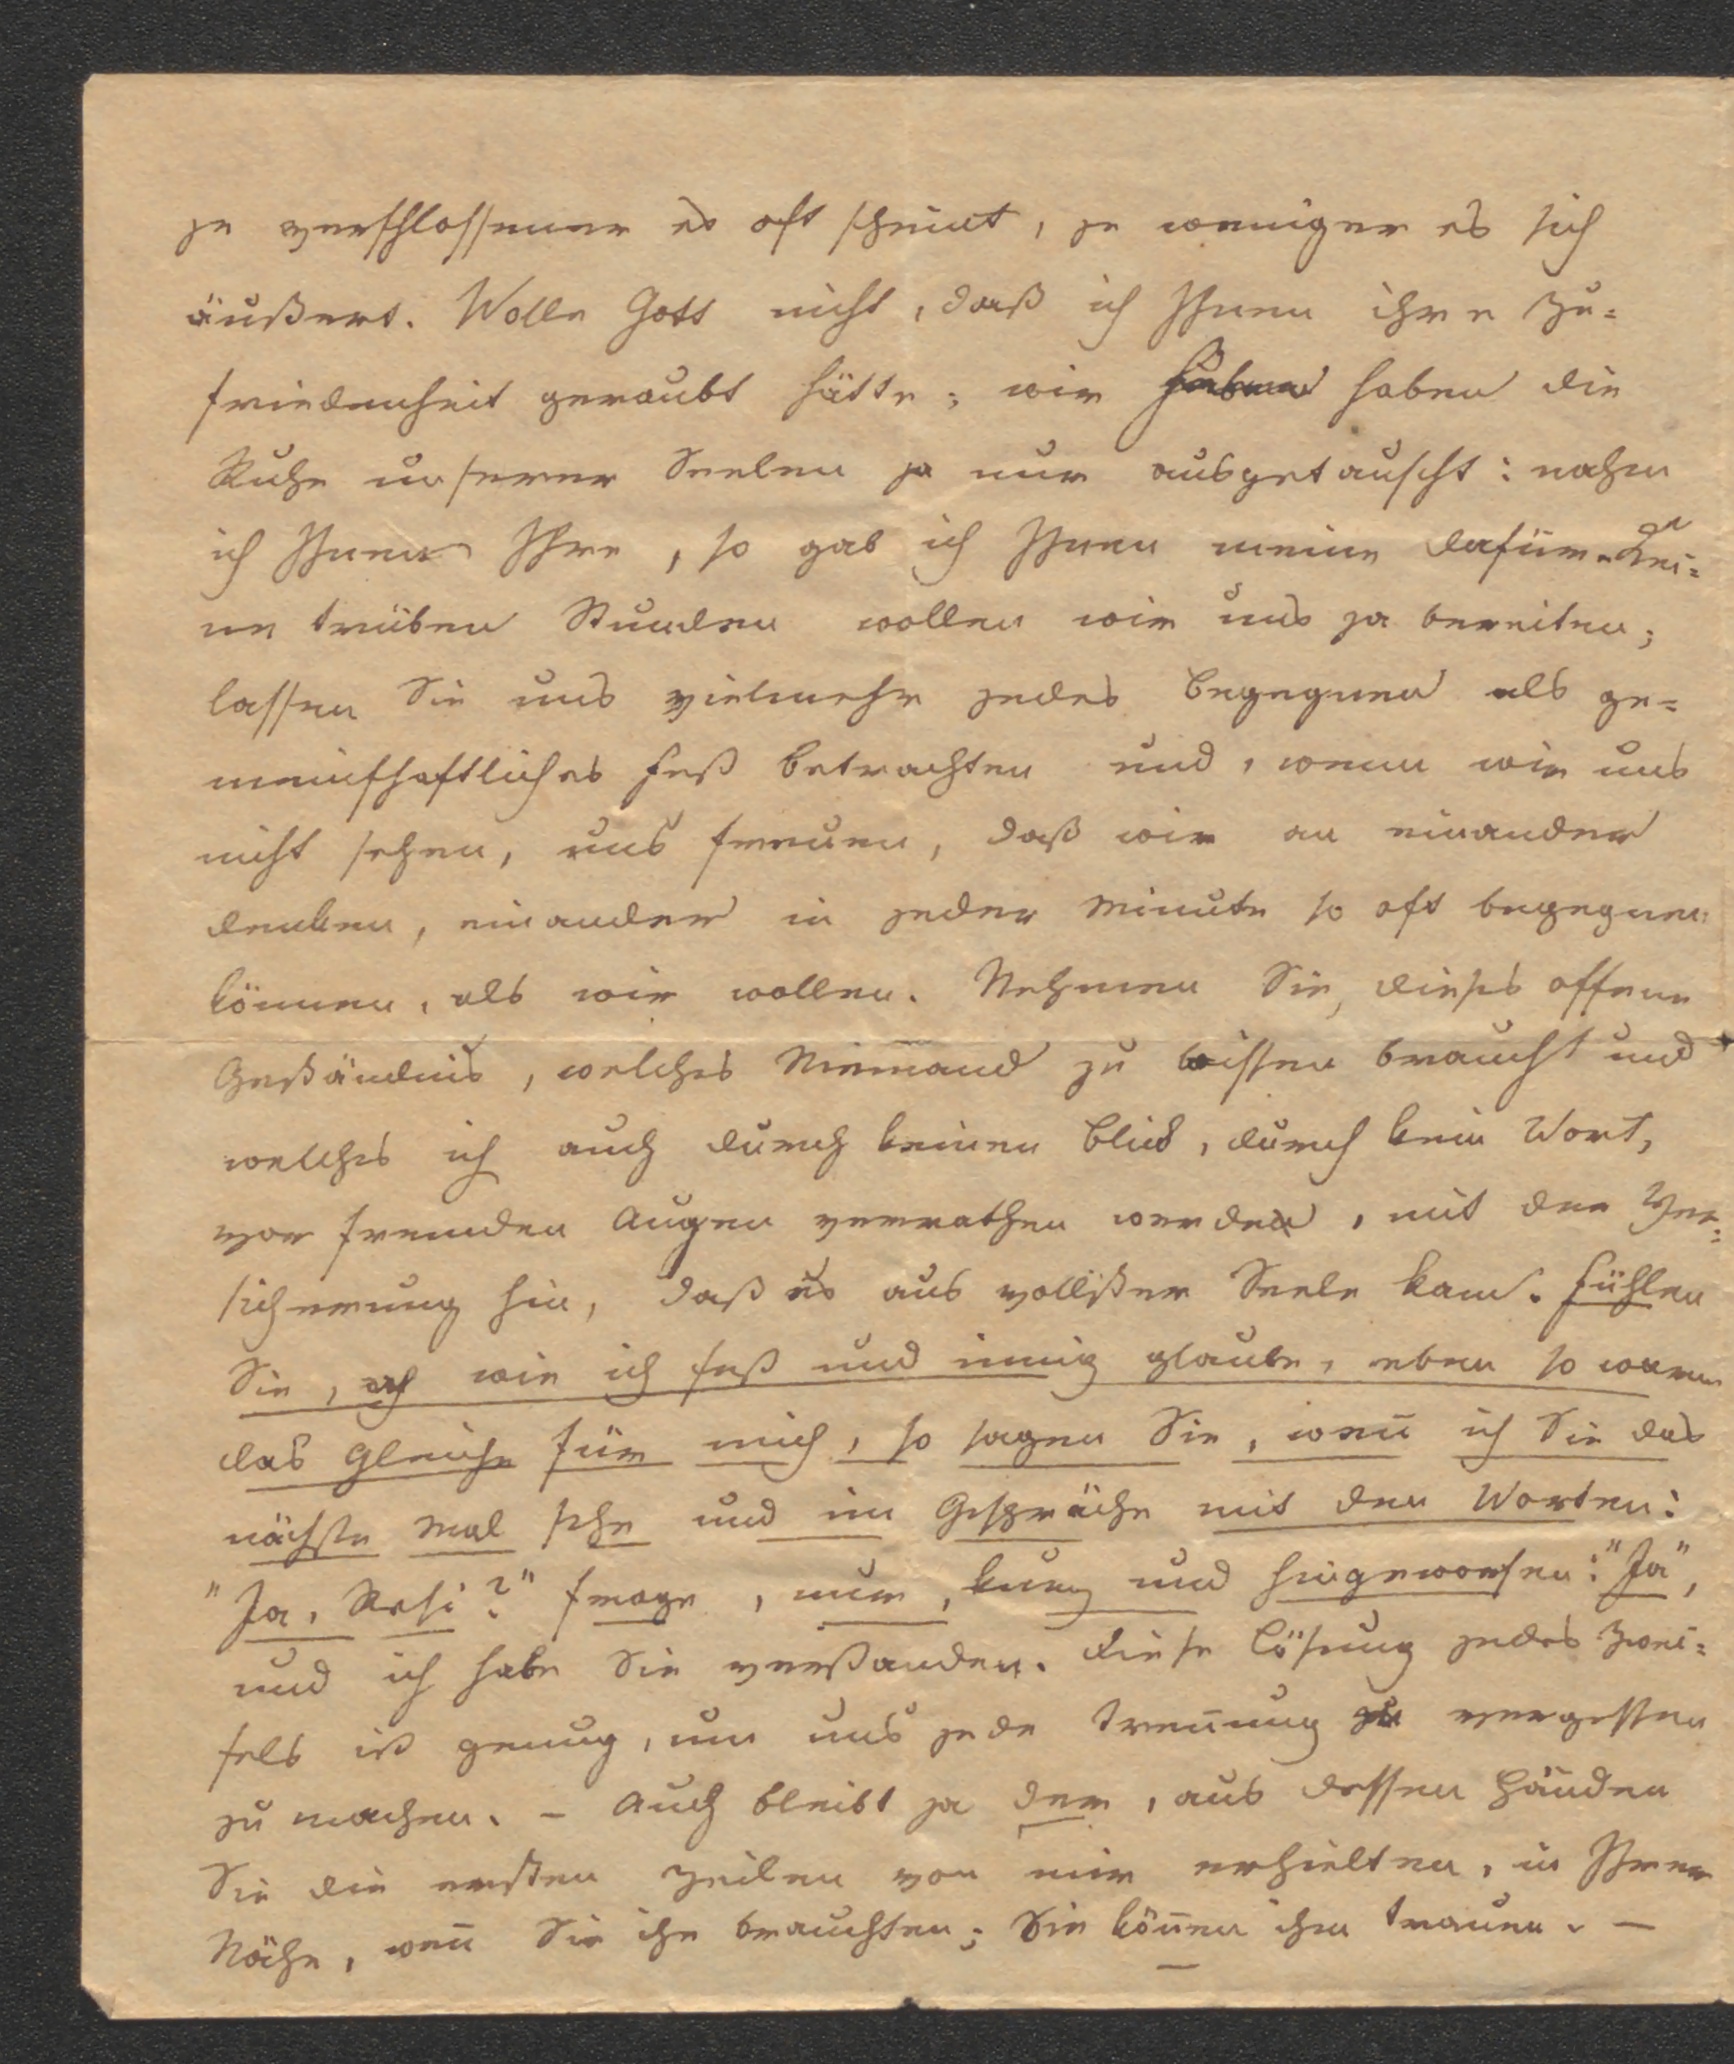 je verschlossener es oft scheint, je weniger es sich
äußert. Wolle Gott nicht, daß ich Ihnen ihre Zu=
friedenheit geraubt hätte; wir haben haben die
Ruhe unserer Seelen ja nur ausgetauscht: nahm
ich Ihnen Ihre, so gab ich Ihnen meine dafür. Kei=
ne trüben Stunden wollen wir uns ja bereiten;
lassen Sie uns vielmehr jedes Begegnen als ge=
meinschaftliches Fest betrachten und, wenn wir uns
nicht sehen, uns freuen, daß wir an einander
denken, einander in jeder Minute so oft begegnen
können, als wir wollen. Nehmen Sie, dieses offene
Geständnis, welches Niemand zu wissen braucht und
welches ich auch durch keinen Blick, durch kein Wort,
vor fremden Augen verrathen werde, mit der Ver=
sicherung hin, daß es aus vollster Seele kam. Fühlen
Sie, wie ich fest und innig glaube, eben so warm
das Gleiche für mich, so sagen Sie, weñ ich Sie das
nächste Mal sehe und im Gespräche mit den Worten:
"Ja, Resi?" frage, nur, kurz und hingeworfen: "Ja",
und ich habe Sie verstanden. Diese Lösung jedes Zwei=
fels ist genug, um uns jede Treñung vergessen
zu machen. – Auch bleibt ja der, aus dessen Händen
Sie die ersten Zeilen von mir erhielten, in Ihrer
Nähe, weñ Sie ihn brauchten; Sie köñen ihm trauen. –